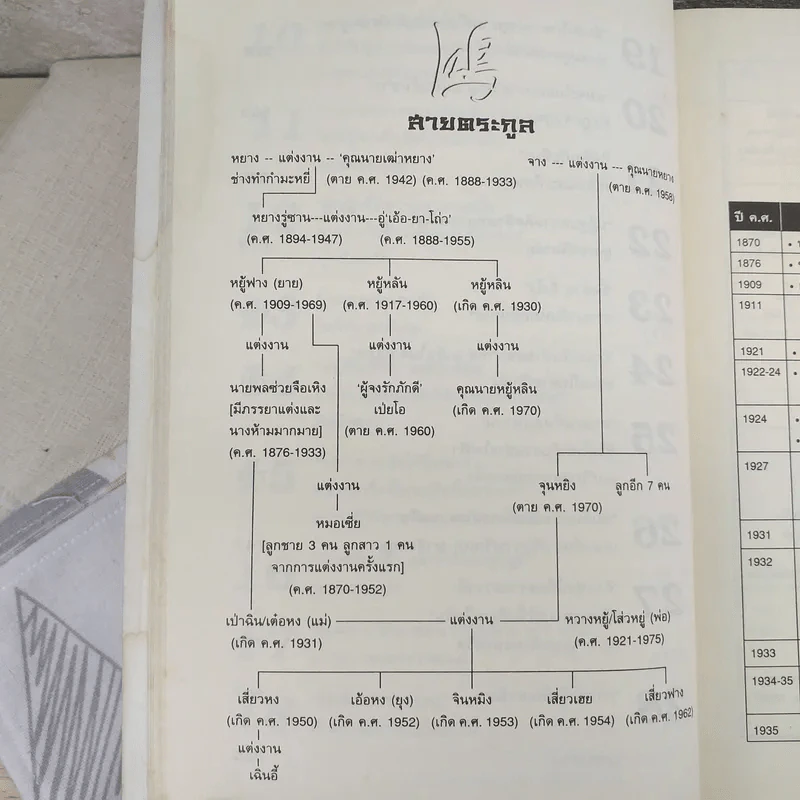 鴻
สายตระกูล
หยาง -- แต่งงาน -- 'คุณนายเฒ่าหยาง'
ช่างทำกำมะหยี่ (ตาย ค.ศ. 1942) (ค.ศ. 1888-1933)
จาง --- แต่งงาน --- คุณนายหยาง
(ตาย ค.ศ. 1958)
หยางรู่ซาน---แต่งงาน---อู่'เอ้อ-ยา-โถ่ว'
(ค.ศ. 1894-1947) (ค.ศ. 1888-1955)
หยู้ฟาง (ยาย) หยู้หลัน หยู้หลิน
(ค.ศ. 1909-1969) (ค.ศ. 1917-1960) (เกิด ค.ศ. 1930)
แต่งงาน แต่งงาน แต่งงาน
นายพลซ่วยจือเหิง 'ผู้จงรักภักดี' คุณนายหยู้หลิน
[มีภรรยาแต่งและ เป่ยโอ (เกิด ค.ศ. 1970)
นางห้ามมากมาย] (ตาย ค.ศ. 1960)
(ค.ศ. 1876-1933)
แต่งงาน จุนหยิง ลูกอีก 7 คน
(ตาย ค.ศ. 1970)
หมอเซี่ย
[ลูกชาย 3 คน ลูกสาว 1 คน
จากการแต่งงานครั้งแรก]
(ค.ศ. 1870-1952)
เป่าฉิน/เต๋อหง (แม่) แต่งงาน หวางหยู้/โส่วหยู่ (พ่อ)
(เกิด ค.ศ. 1931) (ค.ศ. 1921-1975)
เสี่ยวหง เอ้อหง (ยุง) จินหมิง เสี่ยวเฮย เสี่ยวฟาง
(เกิด ค.ศ. 1950) (เกิด ค.ศ. 1952) (เกิด ค.ศ. 1953) (เกิด ค.ศ. 1954) (เกิด ค.ศ. 1962)
แต่งงาน
เฉินอี้
ปี ค.ศ.
1870
1876
1909
1911
1921
1922-24
1924
1927
1931
1932
1933
1934-35
1935